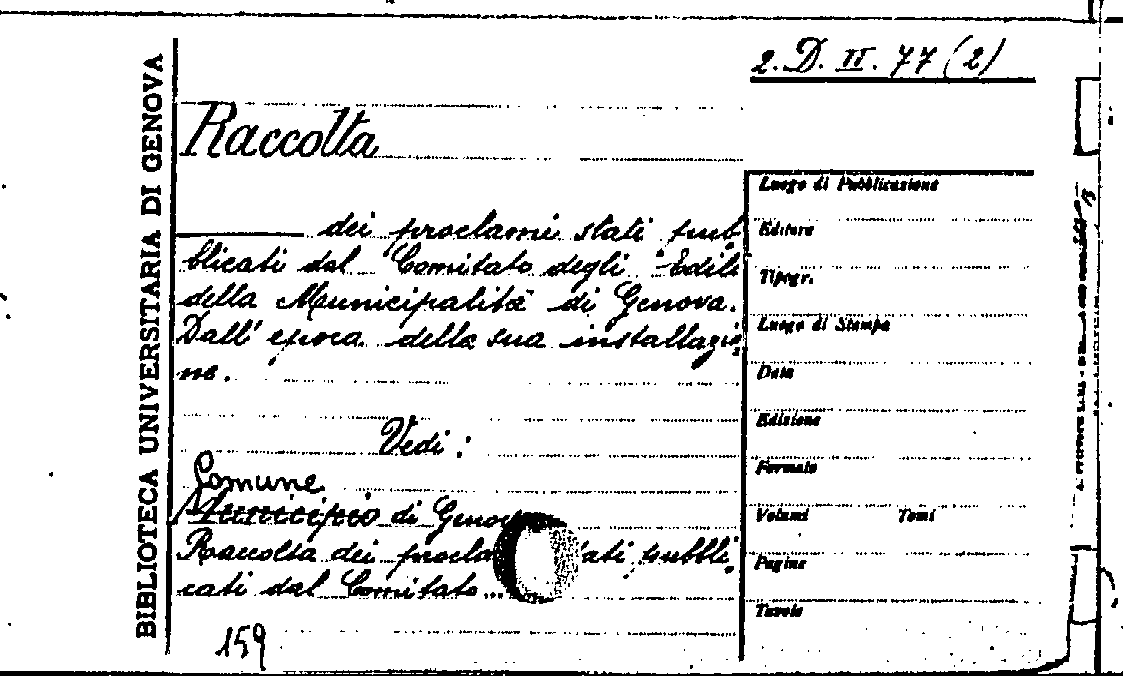 BIBLIOTECA UNIVERSITARIA DI GENOVA
2. D. II. 77 (2)
Raccolta
dei proclami stati pub
blicati dal Comitato degli Edili
della Municipalità di Genova.
Dall' epoca della sua installazio
ne.
Vedi :
Comune
Municipio di Genova
Raccolta dei procla ati pubbli
cati dal Comitato...
159
Luogo di Pubblicazione
Editore
Tipogr.
Luogo di Stampa
Data
Edizione
Formato
Volumi Tomi
Pagine
Tavole